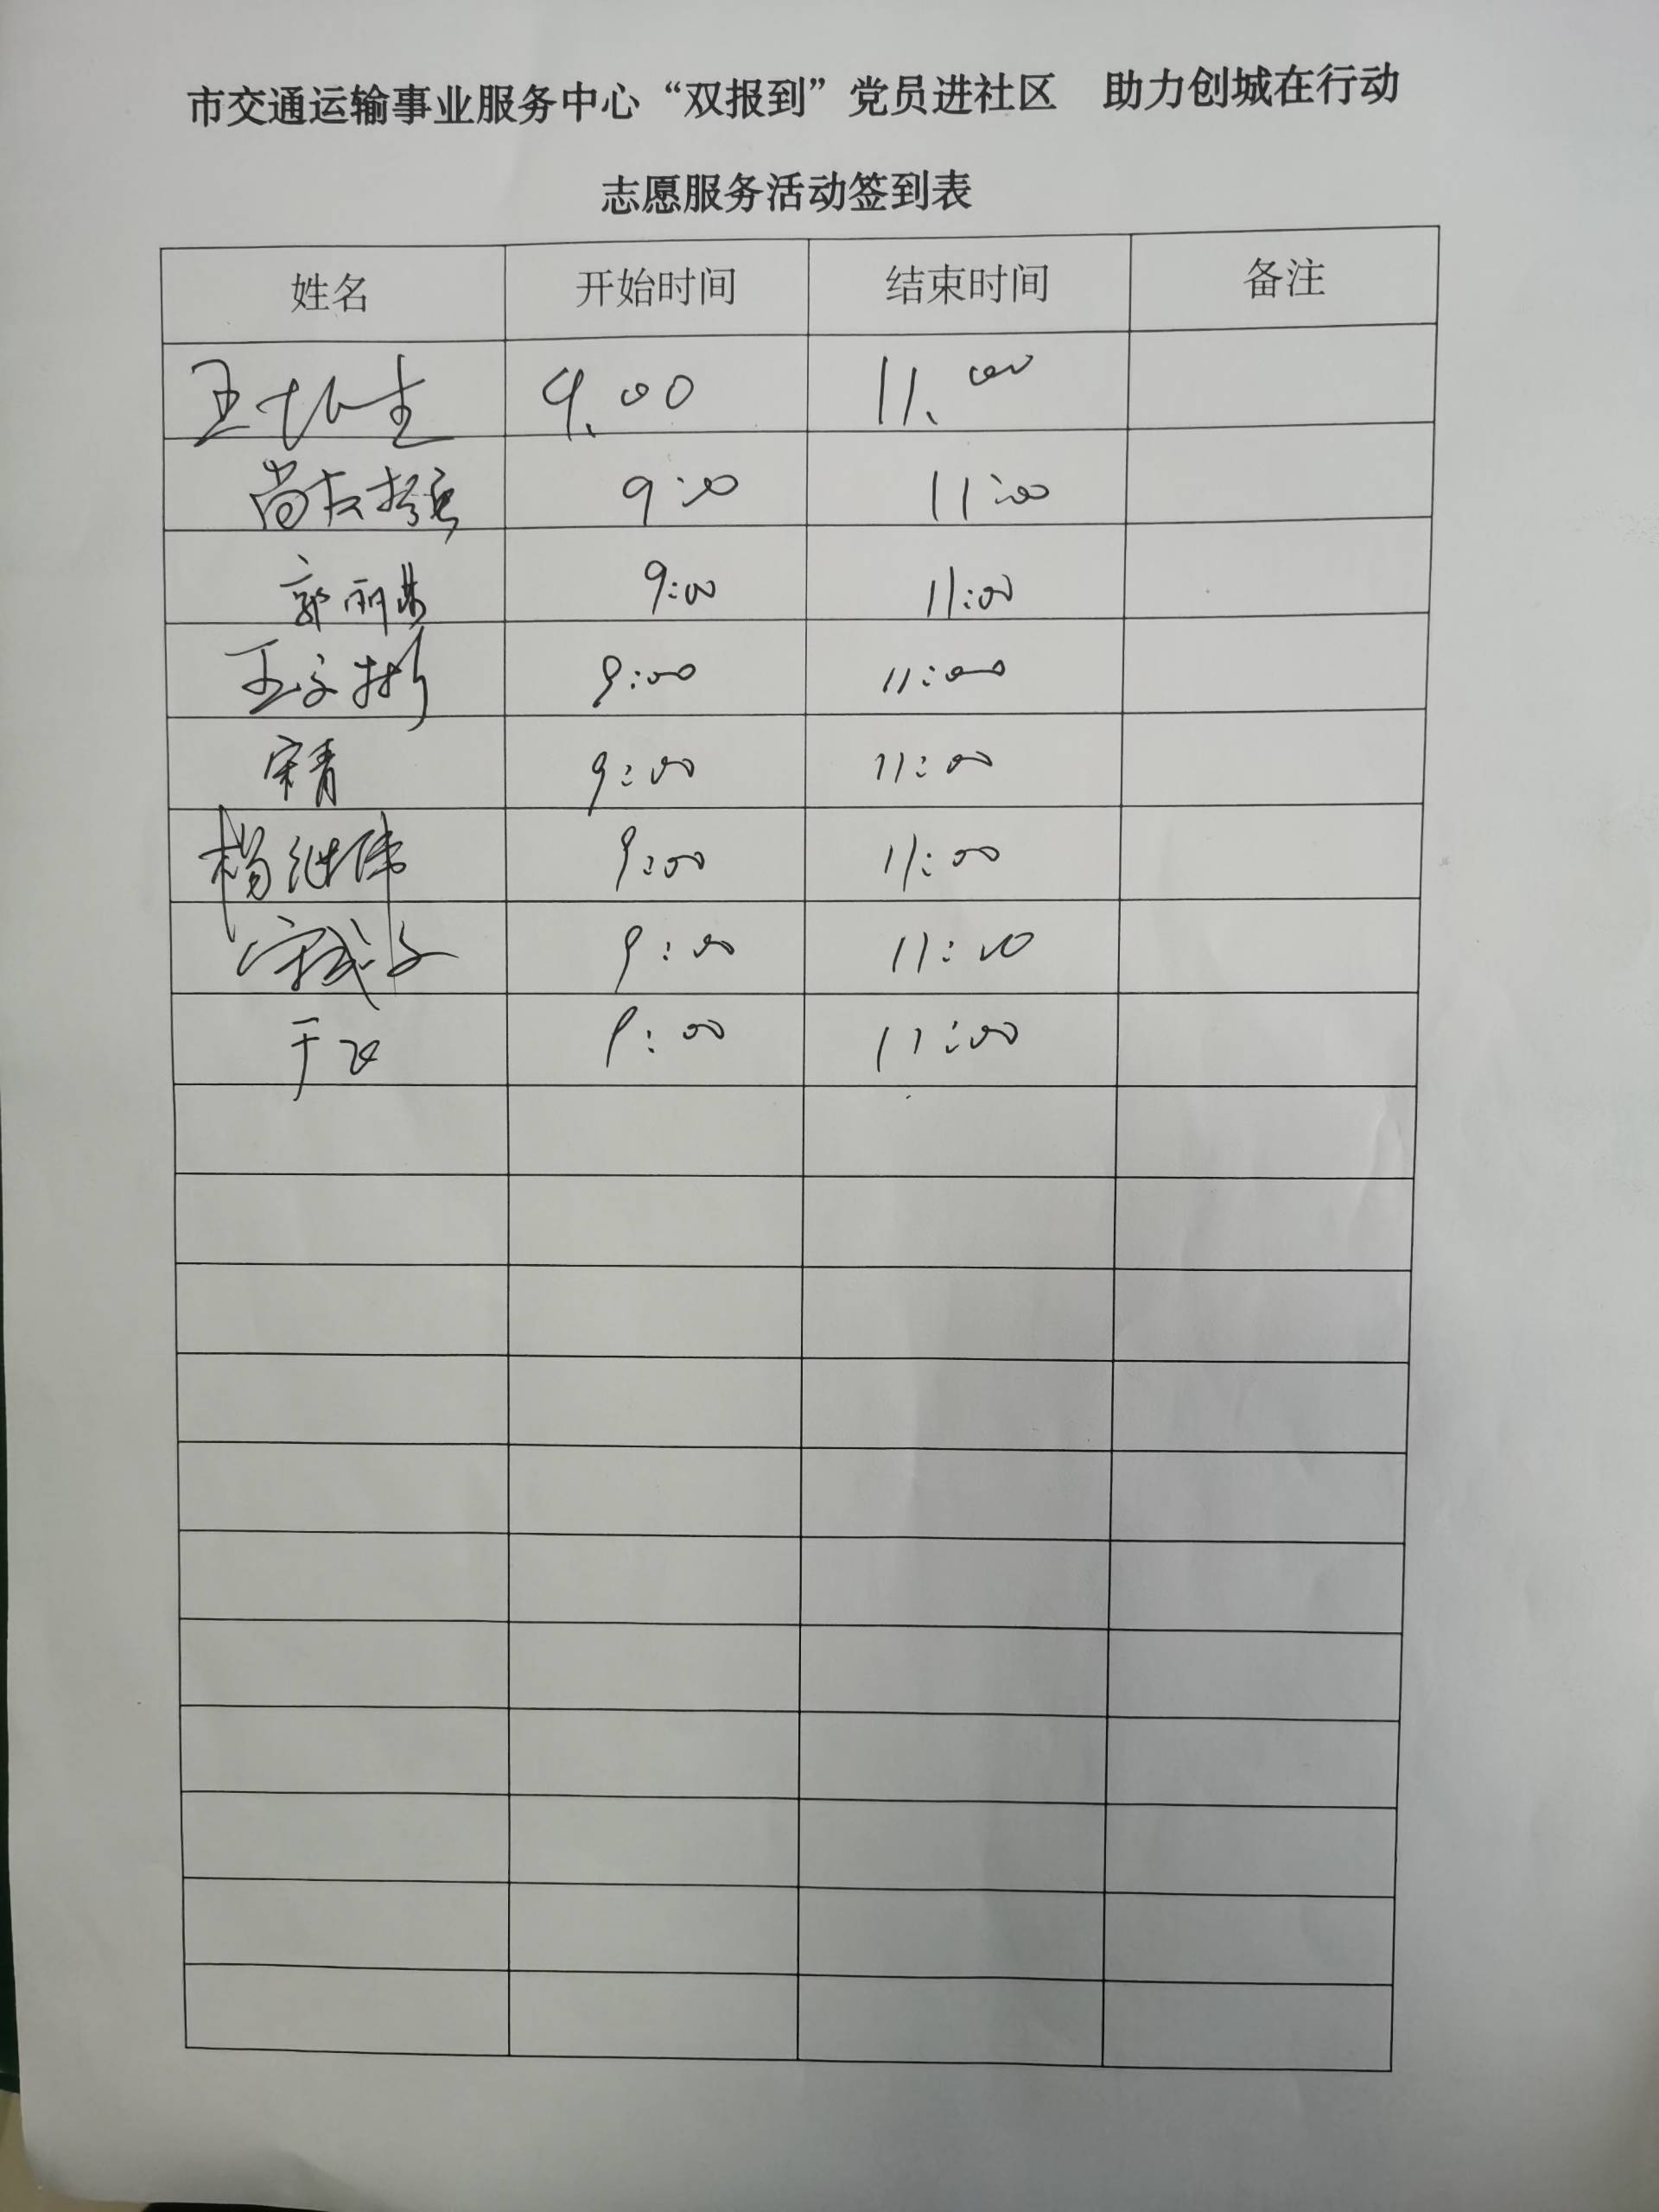 市交通运输事业服务中心“双报到”党员进社区 助力创城在行动
志愿服务活动签到表
姓名 开始时间 结束时间 备注
9.00 11.00
9:00 11:00
郭丽 9:00 11:00
王文彬 9:00 11:00
宋青 9:00 11:00
杨继伟 9:00 11:00
宋成 9:00 11:00
于飞 9:00 11:00